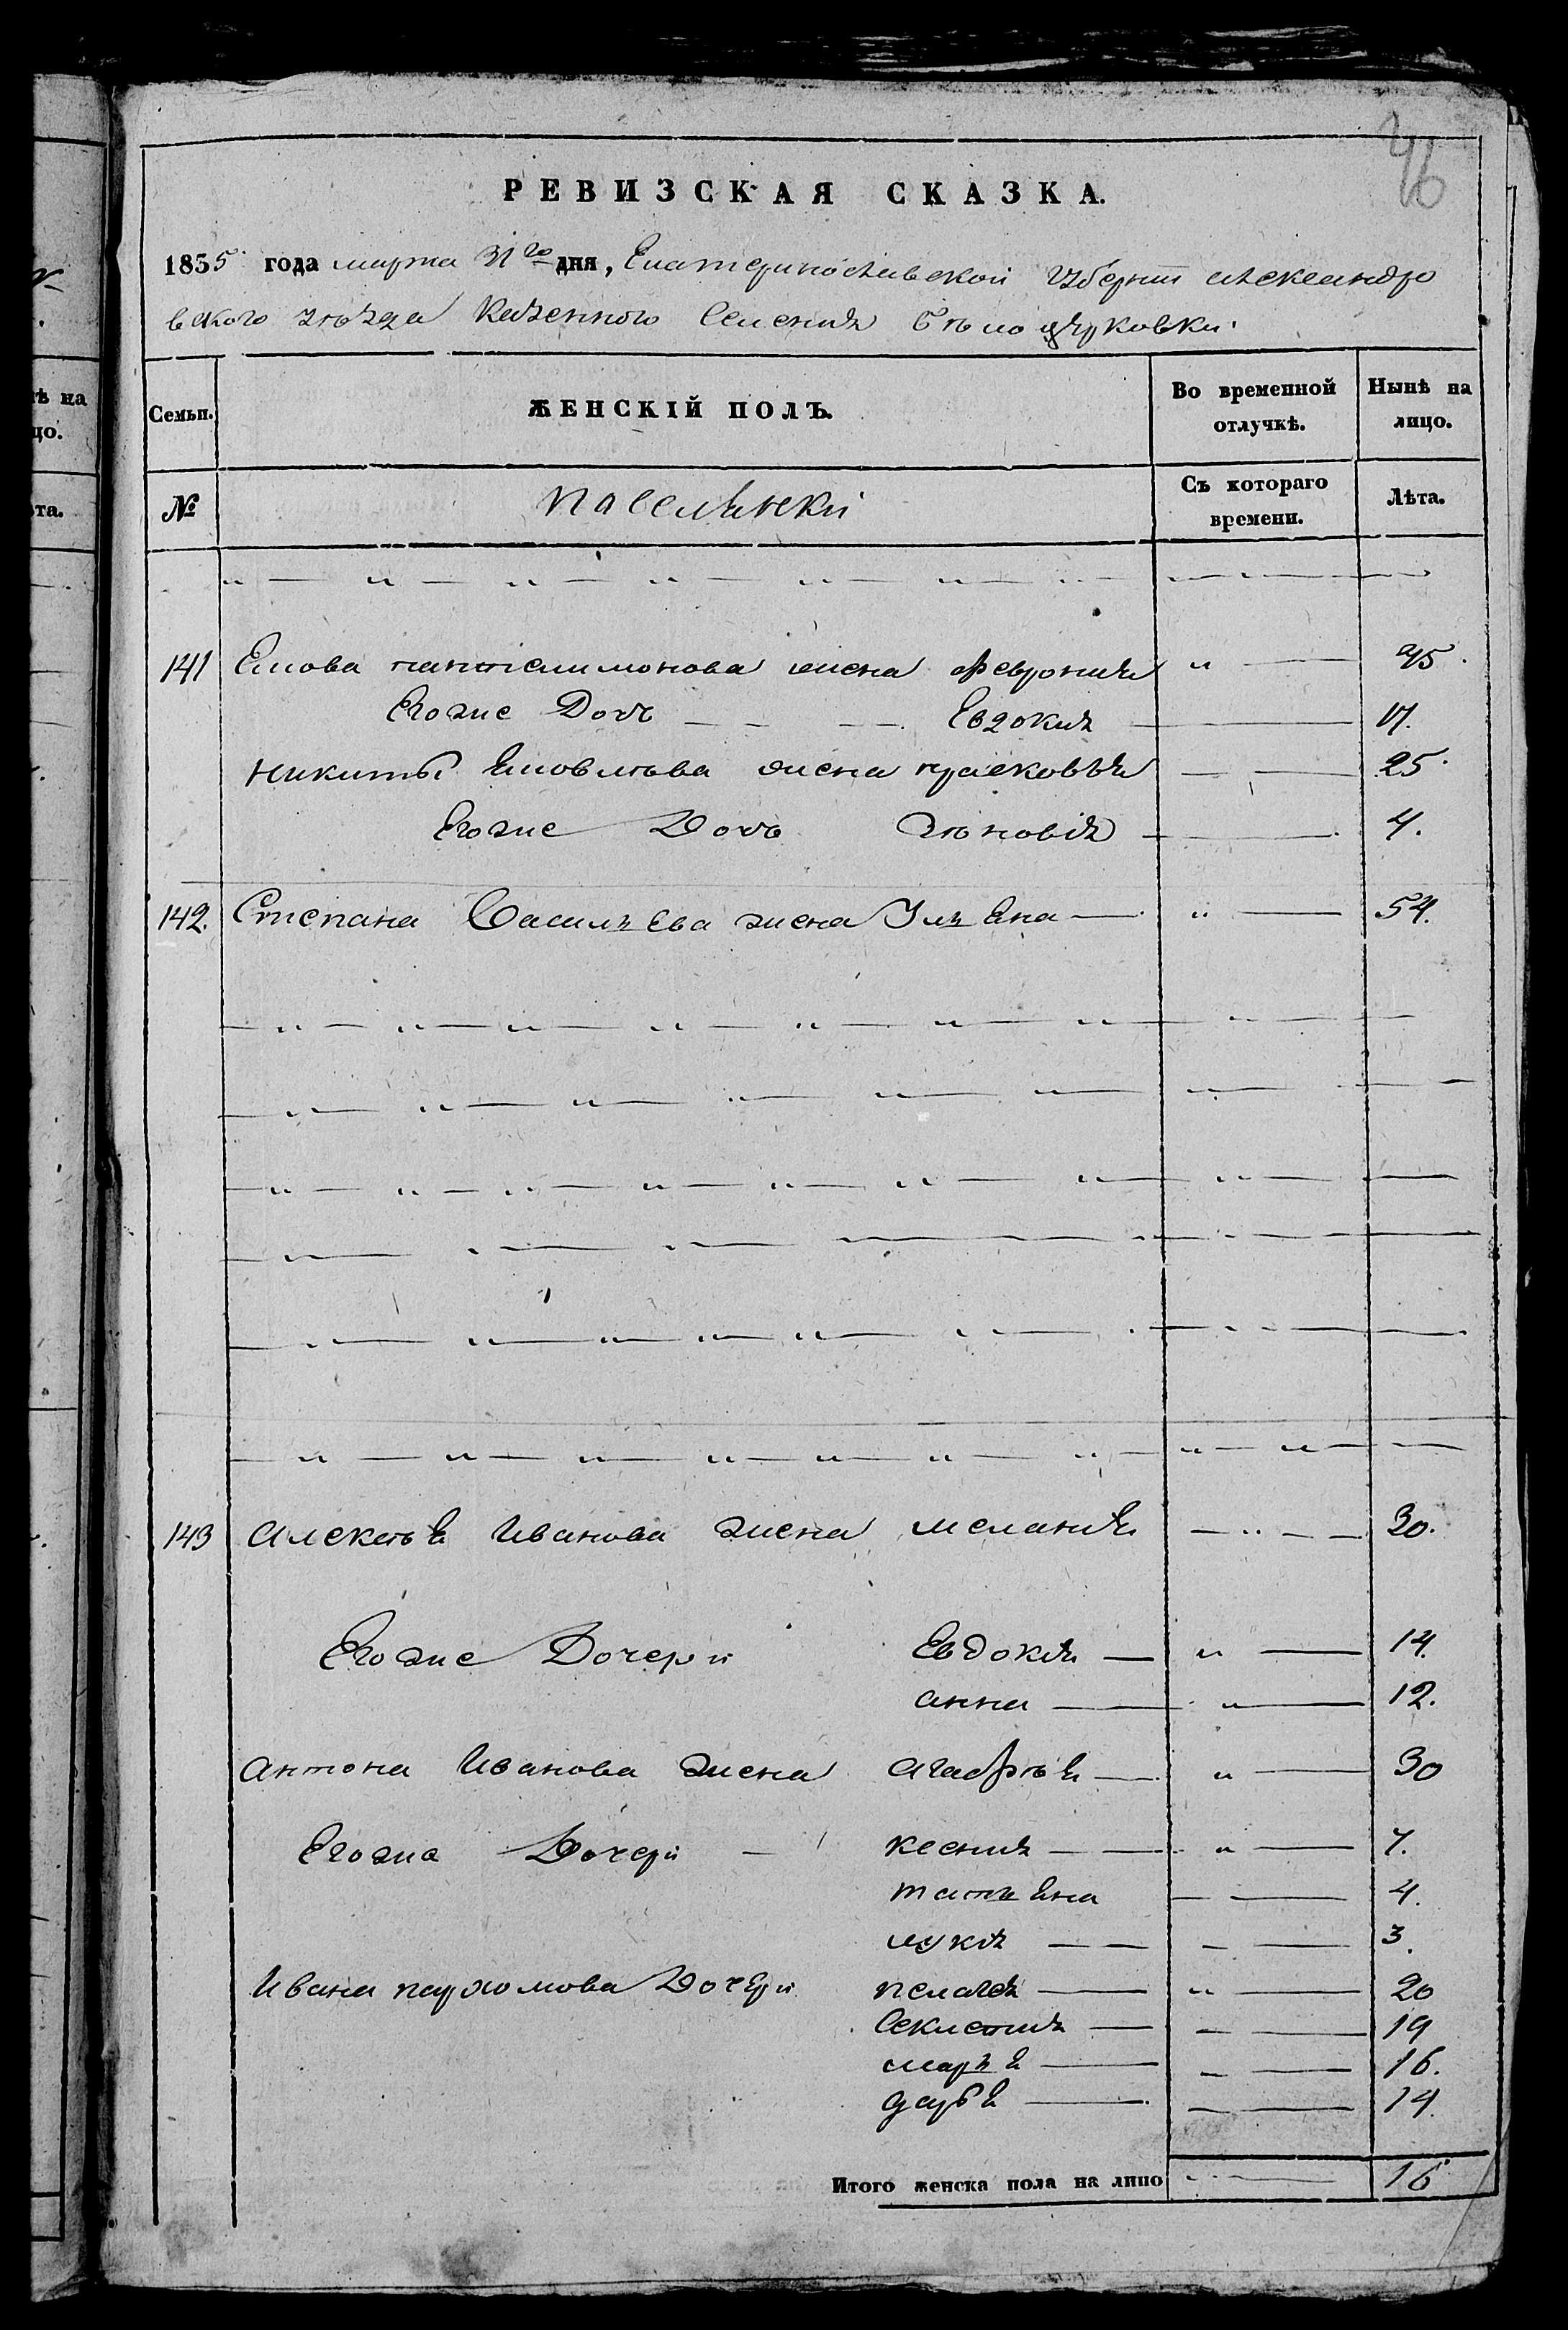 46
РЕВИЗСКАЯ СКАЗКА.
1835 года марта 31го дня, Екатеринославской губернии александро
вского уѣзда Казенного Селения Бѣлоцерковки.
Семьи. ЖЕНСКІЙ ПОЛЪ. Во временной отлучкѣ. Нынѣ на лицо.
№ поселянки Съ котораго времени. Лѣта.
141 Емова пантелимонова жена феврония 45.
Егоже Дочь Евдокия 17.
никиты Емовлѣва жена прасковья 25.
Егоже Дочь Зѣновия 4.
142. Степана Васильева жена Ульяна 54.
143 алексѣя Иванова жена мелания 30.
Егоже Дочери Евдокия 14.
анна 12.
антона Иванова жена агафѣя 30
Егоже Дочери ксения 7.
татьяна 4.
лукия 3.
Ивана пархомова Дочери пелагея 20
Секлетия 19
марья 16.
дарья 14.
Итого женска пола на лицо 16